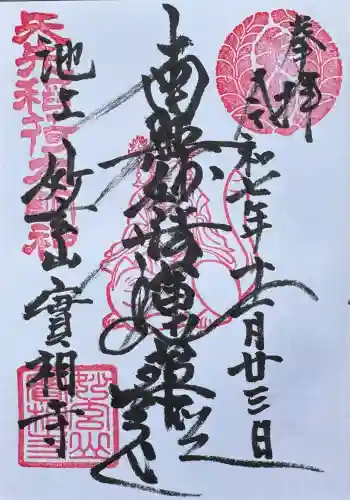 奉拝
令和七年十一月廿三日
南無妙法蓮華経
池上
妙玉山
實相寺